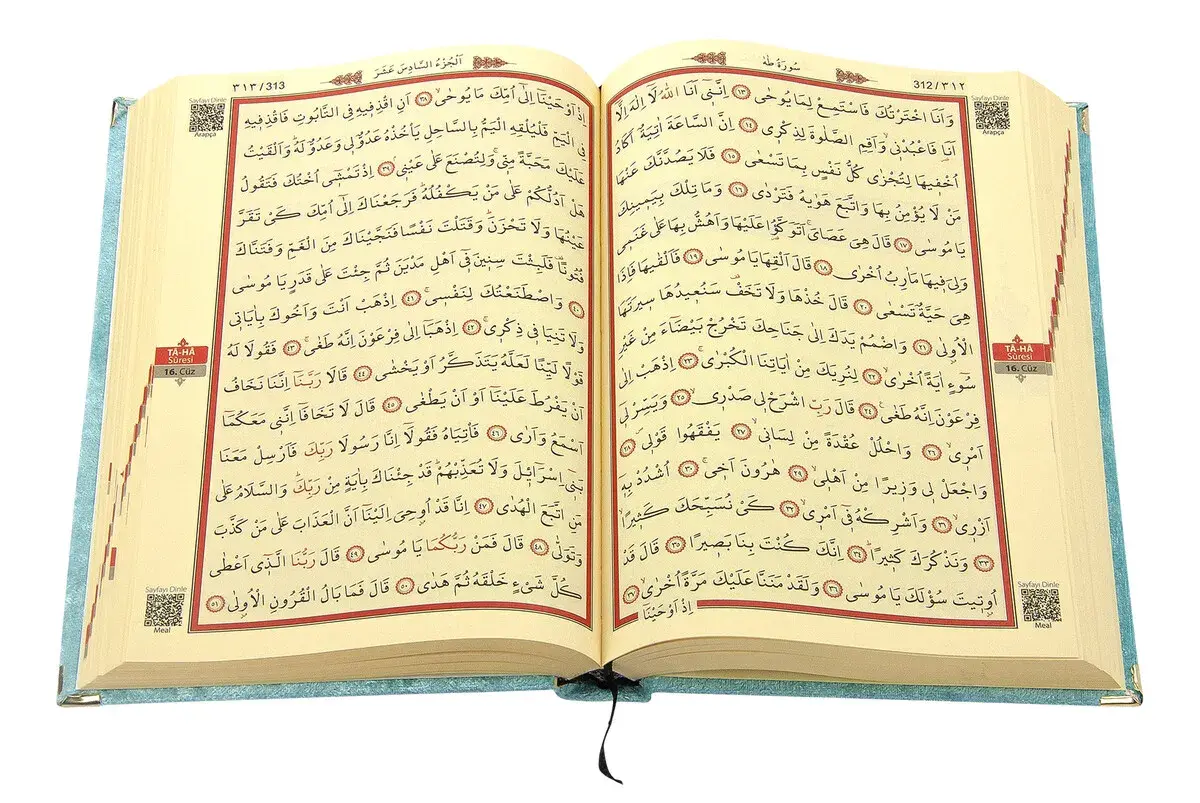 سُورَةُ طٰهٰ
312/٣١٢
Sayfayı Dinle
Arapça
وَاَنَا اخْتَرْتُكَ فَاسْتَمِعْ لِمَا يُوحٰى ١٣ اِنَّن۪ٓي اَنَا اللّٰهُ لَٓا اِلٰهَ اِلَّٓا
اَنَا۬ فَاعْبُدْن۪يۙ وَاَقِمِ الصَّلٰوةَ لِذِكْر۪ي ١٤ اِنَّ السَّاعَةَ اٰتِيَةٌ اَكَادُ
اُخْف۪يهَا لِتُجْزٰى كُلُّ نَفْسٍ بِمَا تَسْعٰى ١٥ فَلَا يَصُدَّنَّكَ عَنْهَا
مَنْ لَا يُؤْمِنُ بِهَا وَاتَّبَعَ هَوٰيهُ فَتَرْدٰى ١٦ وَمَا تِلْكَ بِيَم۪ينِكَ
يَا مُوسٰى ١٧ قَالَ هِيَ عَصَايَۚ اَتَوَكَّؤُ۬ا عَلَيْهَا وَاَهُشُّ بِهَا عَلٰى غَنَم۪ي
وَلِيَ ف۪يهَا مَاٰرِبُ اُخْرٰى ١٨ قَالَ اَلْقِهَا يَا مُوسٰى ١٩ فَاَلْقٰيهَا فَاِذَا
هِيَ حَيَّةٌ تَسْعٰى ٢٠ قَالَ خُذْهَا وَلَا تَخَفْ۠ سَنُع۪يدُهَا س۪يرَتَهَا
الْاُو۫لٰى ٢١ وَاضْمُمْ يَدَكَ اِلٰى جَنَاحِكَ تَخْرُجْ بَيْضَٓاءَ مِنْ غَيْرِ
سُٓوءٍ اٰيَةً اُخْرٰىۙ ٢٢ لِنُرِيَكَ مِنْ اٰيَاتِنَا الْكُبْرٰىۚ ٢٣ اِذْهَبْ اِلٰى
فِرْعَوْنَ اِنَّهُ طَغٰى۟ ٢٤ قَالَ رَبِّ اشْرَحْ ل۪ي صَدْر۪يۙ ٢٥ وَيَسِّرْ ل۪ٓي
اَمْر۪يۙ ٢٦ وَاحْلُلْ عُقْدَةً مِنْ لِسَان۪يۙ ٢٧ يَفْقَهُوا قَوْل۪يۖ ٢٨
وَاجْعَلْ ل۪ي وَز۪يراً مِنْ اَهْل۪يۙ ٢٩ هٰرُونَ اَخ۪يۚ ٣٠ اُشْدُدْ بِه۪ٓ
اَزْر۪يۙ ٣١ وَاَشْرِكْهُ ف۪ٓي اَمْر۪يۙ ٣٢ كَيْ نُسَبِّحَكَ كَث۪يراًۙ
٣٣ وَنَذْكُرَكَ كَث۪يراًۜ ٣٤ اِنَّكَ كُنْتَ بِنَا بَص۪يراً ٣٥ قَالَ قَدْ
اُو۫ت۪يتَ سُؤْلَكَ يَا مُوسٰى ٣٦ وَلَقَدْ مَنَنَّا عَلَيْكَ مَرَّةً اُخْرٰىۙ ٣٧
اِذْ اَوْحَيْنَٓا
TÂ-HÂ
Sûresi
16. Cüz
Sayfayı Dinle
Meal
اَلْجُزْءُ السَّادِسَ عَشَرَ
٣١٣/313
Sayfayı Dinle
Arapça
اِذْ اَوْحَيْنَٓا اِلٰٓى اُمِّكَ مَا يُوحٰىۙ ٣٨ اَنِ اقْذِف۪يهِ فِي التَّابُوتِ فَاقْذِف۪يهِ
فِي الْيَمِّ فَلْيُلْقِهِ الْيَمُّ بِالسَّاحِلِ يَأْخُذْهُ عَدُوٌّ ل۪ي وَعَدُوٌّ لَهُۜ وَاَلْقَيْتُ
عَلَيْكَ مَحَبَّةً مِنّ۪يۚ وَلِتُصْنَعَ عَلٰى عَيْن۪يۢ ٣٩ اِذْ تَمْش۪ٓي اُخْتُكَ فَتَقُولُ
هَلْ اَدُلُّكُمْ عَلٰى مَنْ يَكْفُلُهُۜ فَرَجَعْنَاكَ اِلٰٓى اُمِّكَ كَيْ تَقَرَّ
عَيْنُهَا وَلَا تَحْزَنَۜ وَقَتَلْتَ نَفْساً فَنَجَّيْنَاكَ مِنَ الْغَمِّ وَفَتَنَّاكَ
فُتُوناً۠ فَلَبِثْتَ سِن۪ينَ ف۪ٓي اَهْلِ مَدْيَنَ ثُمَّ جِئْتَ عَلٰى قَدَرٍ يَا مُوسٰى
٤٠ وَاصْطَنَعْتُكَ لِنَفْس۪يۚ ٤١ اِذْهَبْ اَنْتَ وَاَخُوكَ بِاٰيَات۪ي
وَلَا تَنِيَا ف۪ي ذِكْر۪يۚ ٤٢ اِذْهَبَٓا اِلٰى فِرْعَوْنَ اِنَّهُ طَغٰىۚ ٤٣ فَقُولَا لَهُ
قَوْلاً لَيِّناً لَعَلَّهُ يَتَذَكَّرُ اَوْ يَخْشٰى ٤٤ قَالَا رَبَّنَٓا اِنَّنَا نَخَافُ
اَنْ يَفْرُطَ عَلَيْنَٓا اَوْ اَنْ يَطْغٰى ٤٥ قَالَ لَا تَخَافَٓا اِنَّن۪ي مَعَكُمَٓا
اَسْمَعُ وَاَرٰى ٤٦ فَأْتِيَاهُ فَقُولَٓا اِنَّا رَسُولَا رَبِّكَ فَاَرْسِلْ مَعَنَا
بَن۪ٓي اِسْرَٓائ۪لَ وَلَا تُعَذِّبْهُمْۜ قَدْ جِئْنَاكَ بِاٰيَةٍ مِنْ رَبِّكَۜ وَالسَّلَامُ عَلٰى
مَنِ اتَّبَعَ الْهُدٰى ٤٧ اِنَّا قَدْ اُو۫حِيَ اِلَيْنَٓا اَنَّ الْعَذَابَ عَلٰى مَنْ كَذَّبَ
وَتَوَلّٰى ٤٨ قَالَ فَمَنْ رَبُّكُمَا يَا مُوسٰى ٤٩ قَالَ رَبُّنَا الَّذ۪ٓي اَعْطٰى
كُلَّ شَيْءٍ خَلْقَهُ ثُمَّ هَدٰى ٥٠ قَالَ فَمَا بَالُ الْقُرُونِ الْاُو۫لٰى ٥١
TÂ-HÂ
Sûresi
16. Cüz
Sayfayı Dinle
Meal